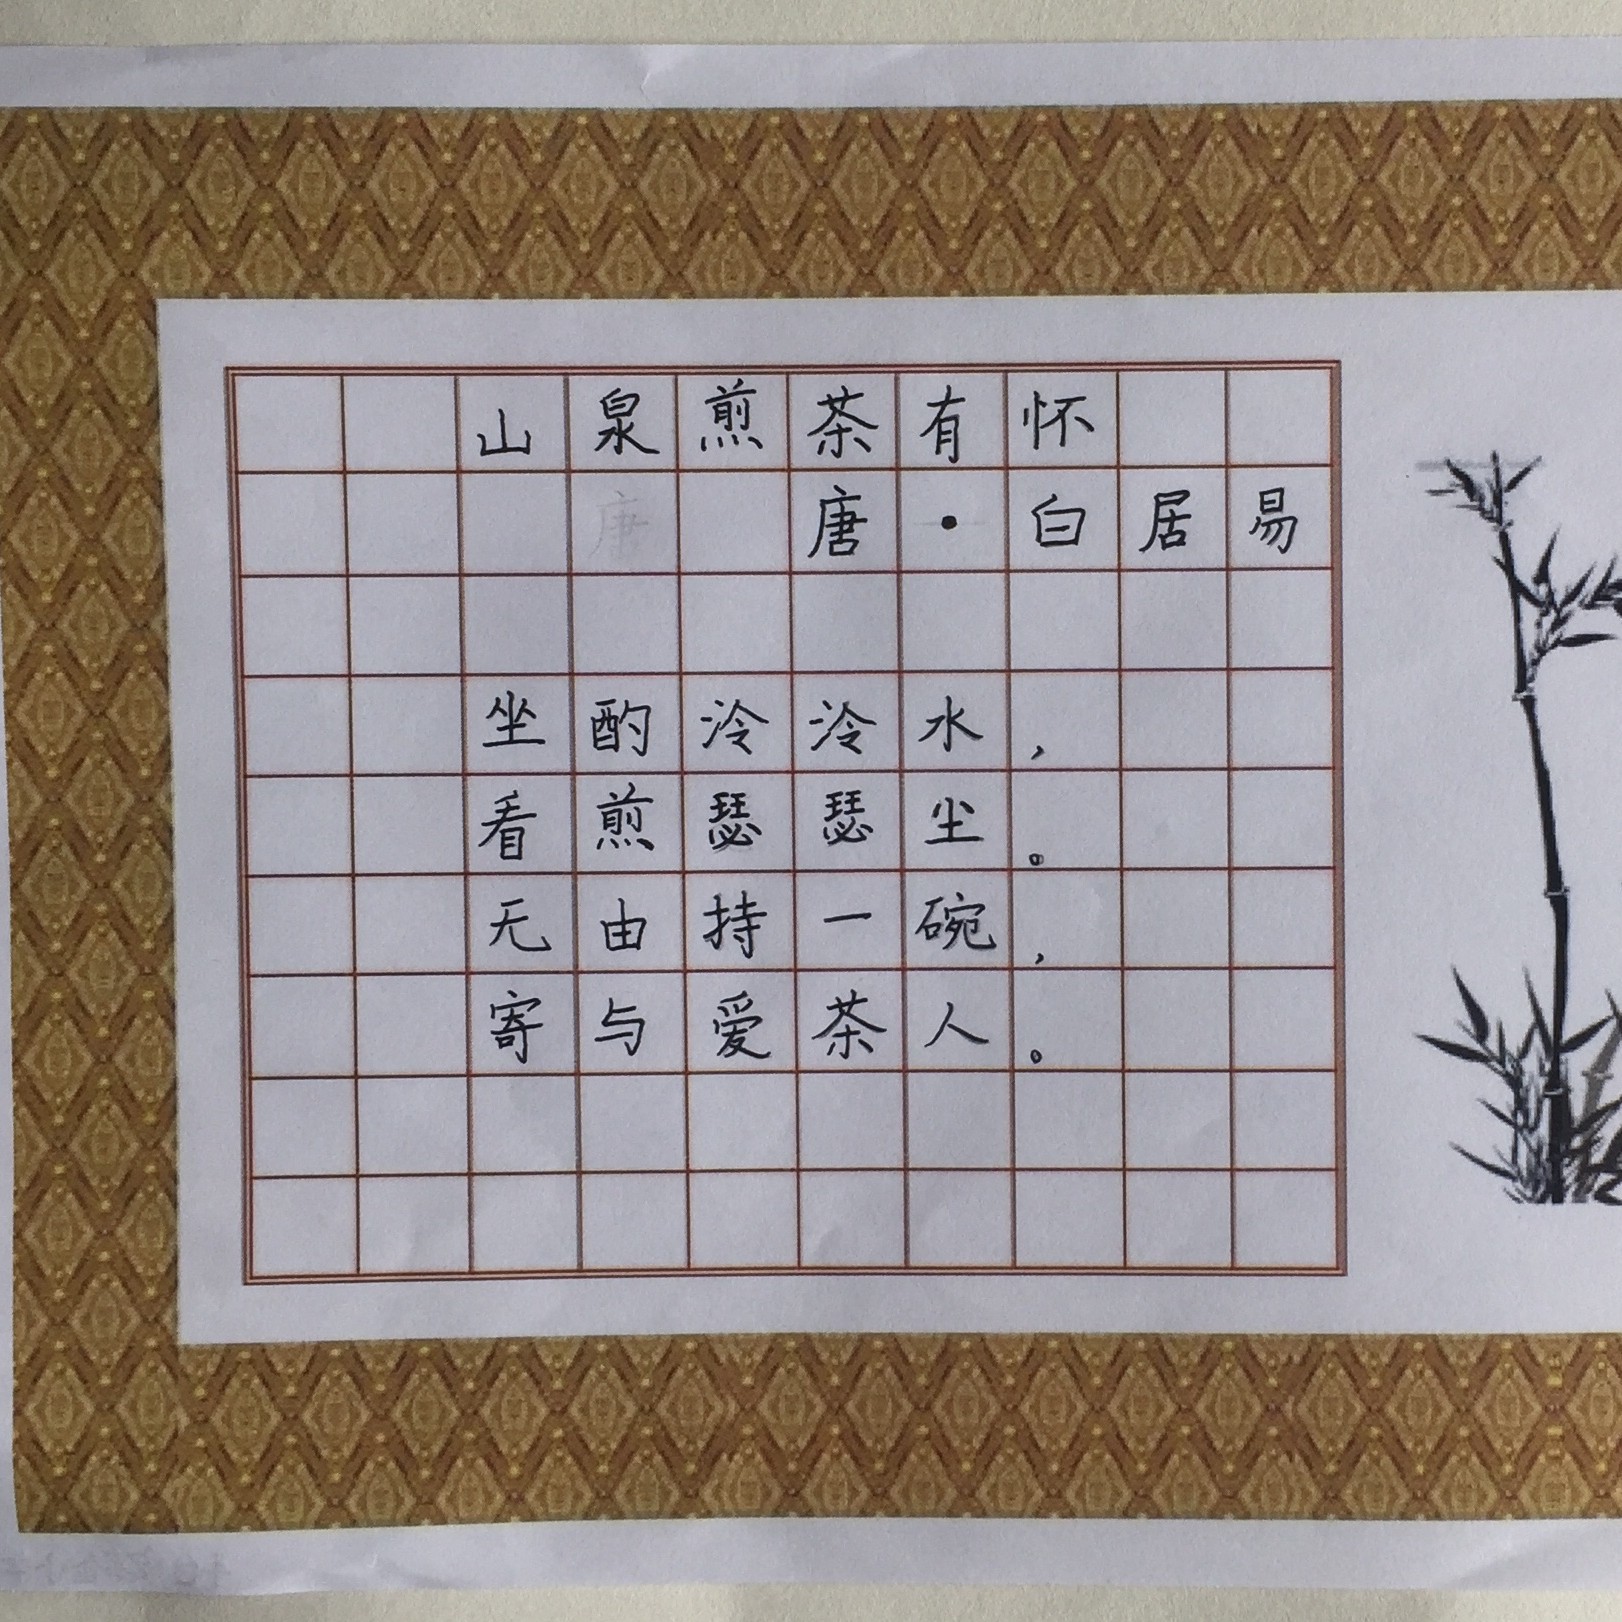 山泉煎茶有怀
唐·白居易
坐酌泠泠水，
看煎瑟瑟尘。
无由持一碗，
寄与爱茶人。